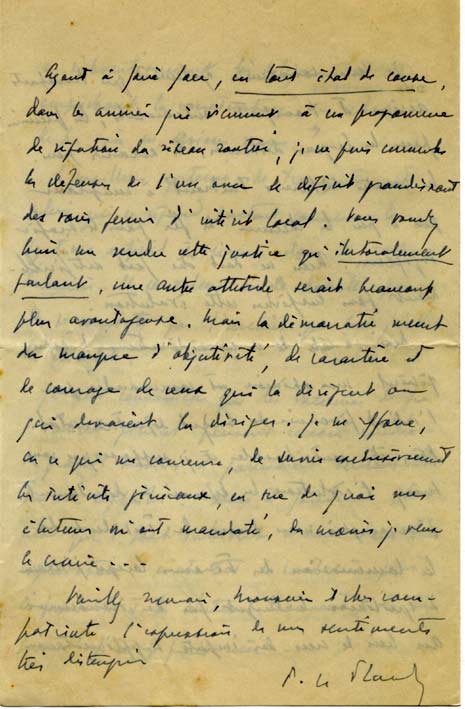 Ayant à faire face, en tout état de cause,
dans les années qui viennent à un programme
de réfection du réseau routier, je ne puis cumuler
les dépenses de l'un avec le déficit grandissant
des voies ferrées d'intérêt local. Vous voudrez
bien me rendre cette justice qu'électoralement
parlant, une autre attitude serait beaucoup
plus avantageuse. Mais la démocratie meurt
du manque d'objectivité, de caractère et
de courage de ceux qui la dirigent ou
qui devraient la diriger. Je m'efforce,
en ce qui me concerne, de servir exclusivement
les intérêts généraux, en vue de quoi mes
électeurs m'ont mandaté, du moins je veux
le croire...
Veuillez agréer, Monsieur et cher com-
patriote l'expression de mes sentiments
très distingués